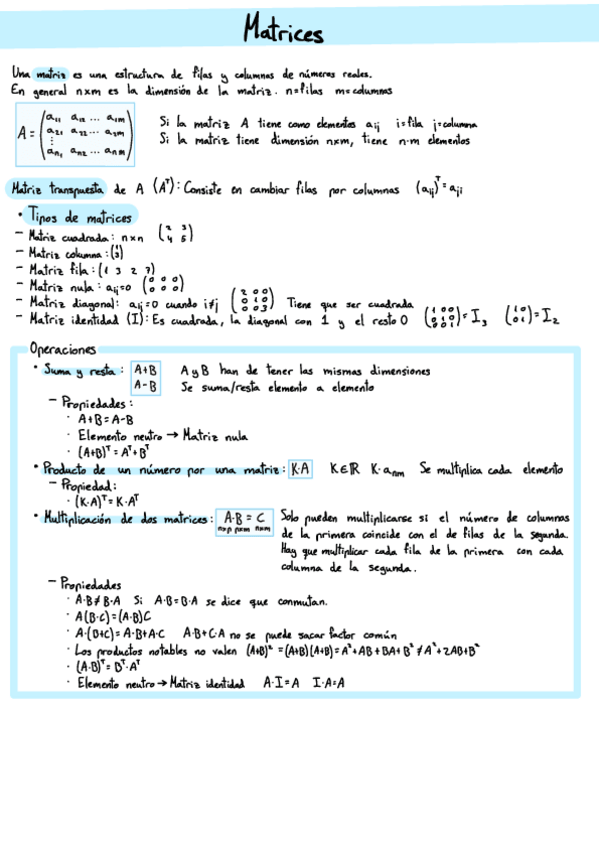 Matrices
Una matriz es una estructura de filas y columnas de números reales.
En general n×m es la dimensión de la matriz. n=filas m=columnas
A = (a₁₁ a₁₂ ... a₁ₘ
a₂₁ a₂₂ ... a₂ₘ
⋮
aₙ₁ aₙ₂ ... aₙₘ)
Si la matriz A tiene como elementos aᵢⱼ i=fila j=columna
Si la matriz tiene dimensión n×m, tiene n·m elementos
Matriz transpuesta de A (Aᵀ): Consiste en cambiar filas por columnas (aᵢⱼ)ᵀ=aⱼᵢ
• Tipos de matrices
– Matriz cuadrada: n×n (2 3 / 4 5)
– Matriz columna: (1 / 3)
– Matriz fila: (1 3 2 7)
– Matriz nula: aᵢⱼ=0 (0 0 0 / 0 0 0)
– Matriz diagonal: aᵢⱼ=0 cuando i≠j (2 0 0 / 0 1 0 / 0 0 3) Tiene que ser cuadrada
– Matriz identidad (I): Es cuadrada, la diagonal con 1 y el resto 0 (1 0 0 / 0 1 0 / 0 0 1) = I₃ (1 0 / 0 1) = I₂
Operaciones
• Suma y resta: A+B A y B han de tener las mismas dimensiones
A-B Se suma/resta elemento a elemento
– Propiedades:
· A+B=A-B
· Elemento neutro → Matriz nula
· (A+B)ᵀ=Aᵀ+Bᵀ
• Producto de un número por una matriz: K·A K∈ℝ K·aₙₘ Se multiplica cada elemento
– Propiedad:
· (K·A)ᵀ=K·Aᵀ
• Multiplicación de dos matrices: A·B = C Solo pueden multiplicarse si el número de columnas
n×p p×m n×m de la primera coincide con el de filas de la segunda.
Hay que multiplicar cada fila de la primera con cada
columna de la segunda.
– Propiedades
· A·B≠B·A Si A·B=B·A se dice que conmutan.
· A(B·C)=(A·B)C
· A·(B+C)=A·B+A·C A·B+C·A no se puede sacar factor común
· Los productos notables no valen (A+B)²=(A+B)(A+B)=A²+AB+BA+B²≠A²+2AB+B²
· (A·B)ᵀ=Bᵀ·Aᵀ
· Elemento neutro → Matriz identidad A·I=A I·A=A